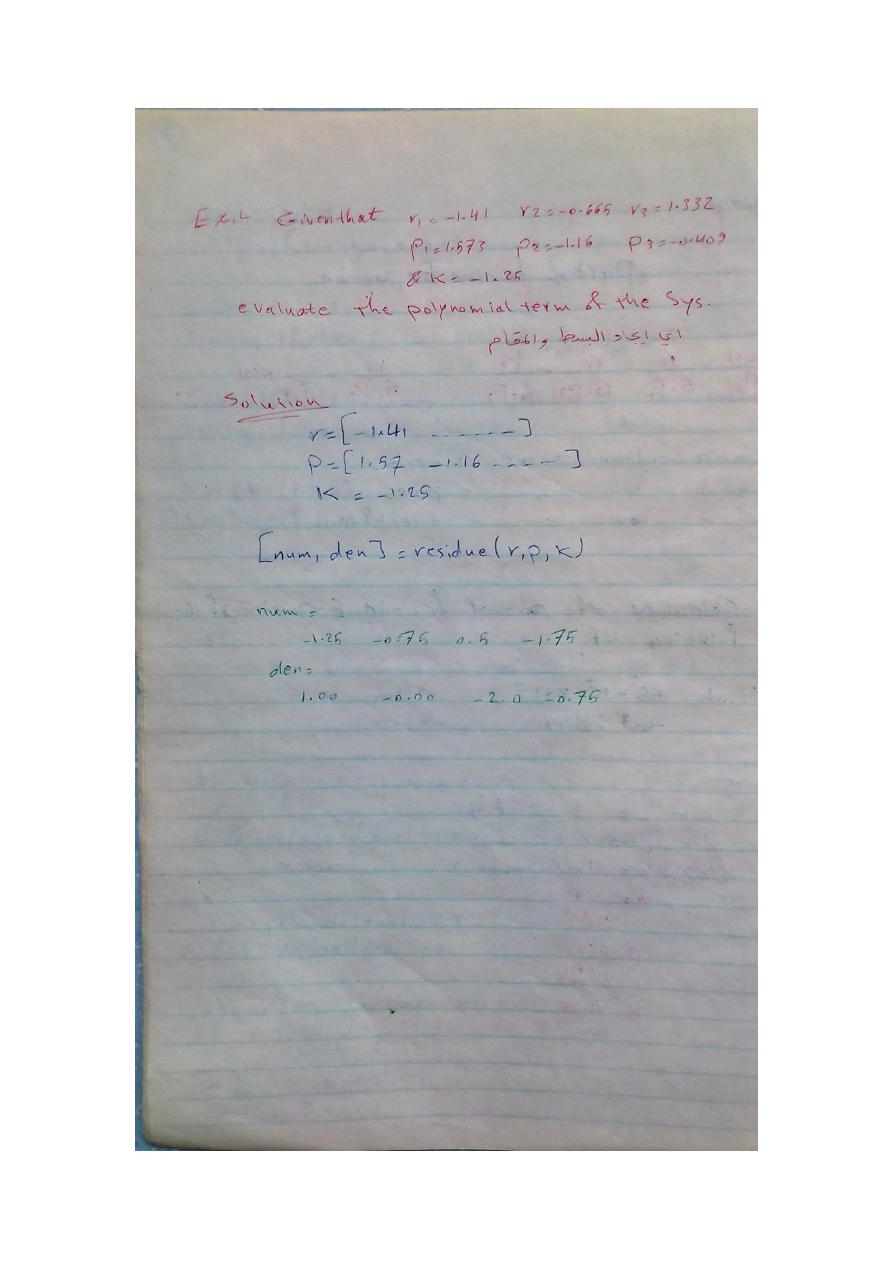 Ex.L Given that r1 = -1.41 r2 = -0.665 r3 = 1.332
P1 = 1.573 P2 = -1.16 P3 = -0.409
& K = -1.25
evaluate the polynomial term & the Sys.
اي ايجاد البسط والمقام
Solution
r=[-1.41 ------]
P=[1.57 -1.16 -----]
K = -1.25
[num, den] = residue(r,p,k)
num =
-1.25 -0.75 0.5 -1.75
den=
1.00 -0.00 -2.0 -0.75